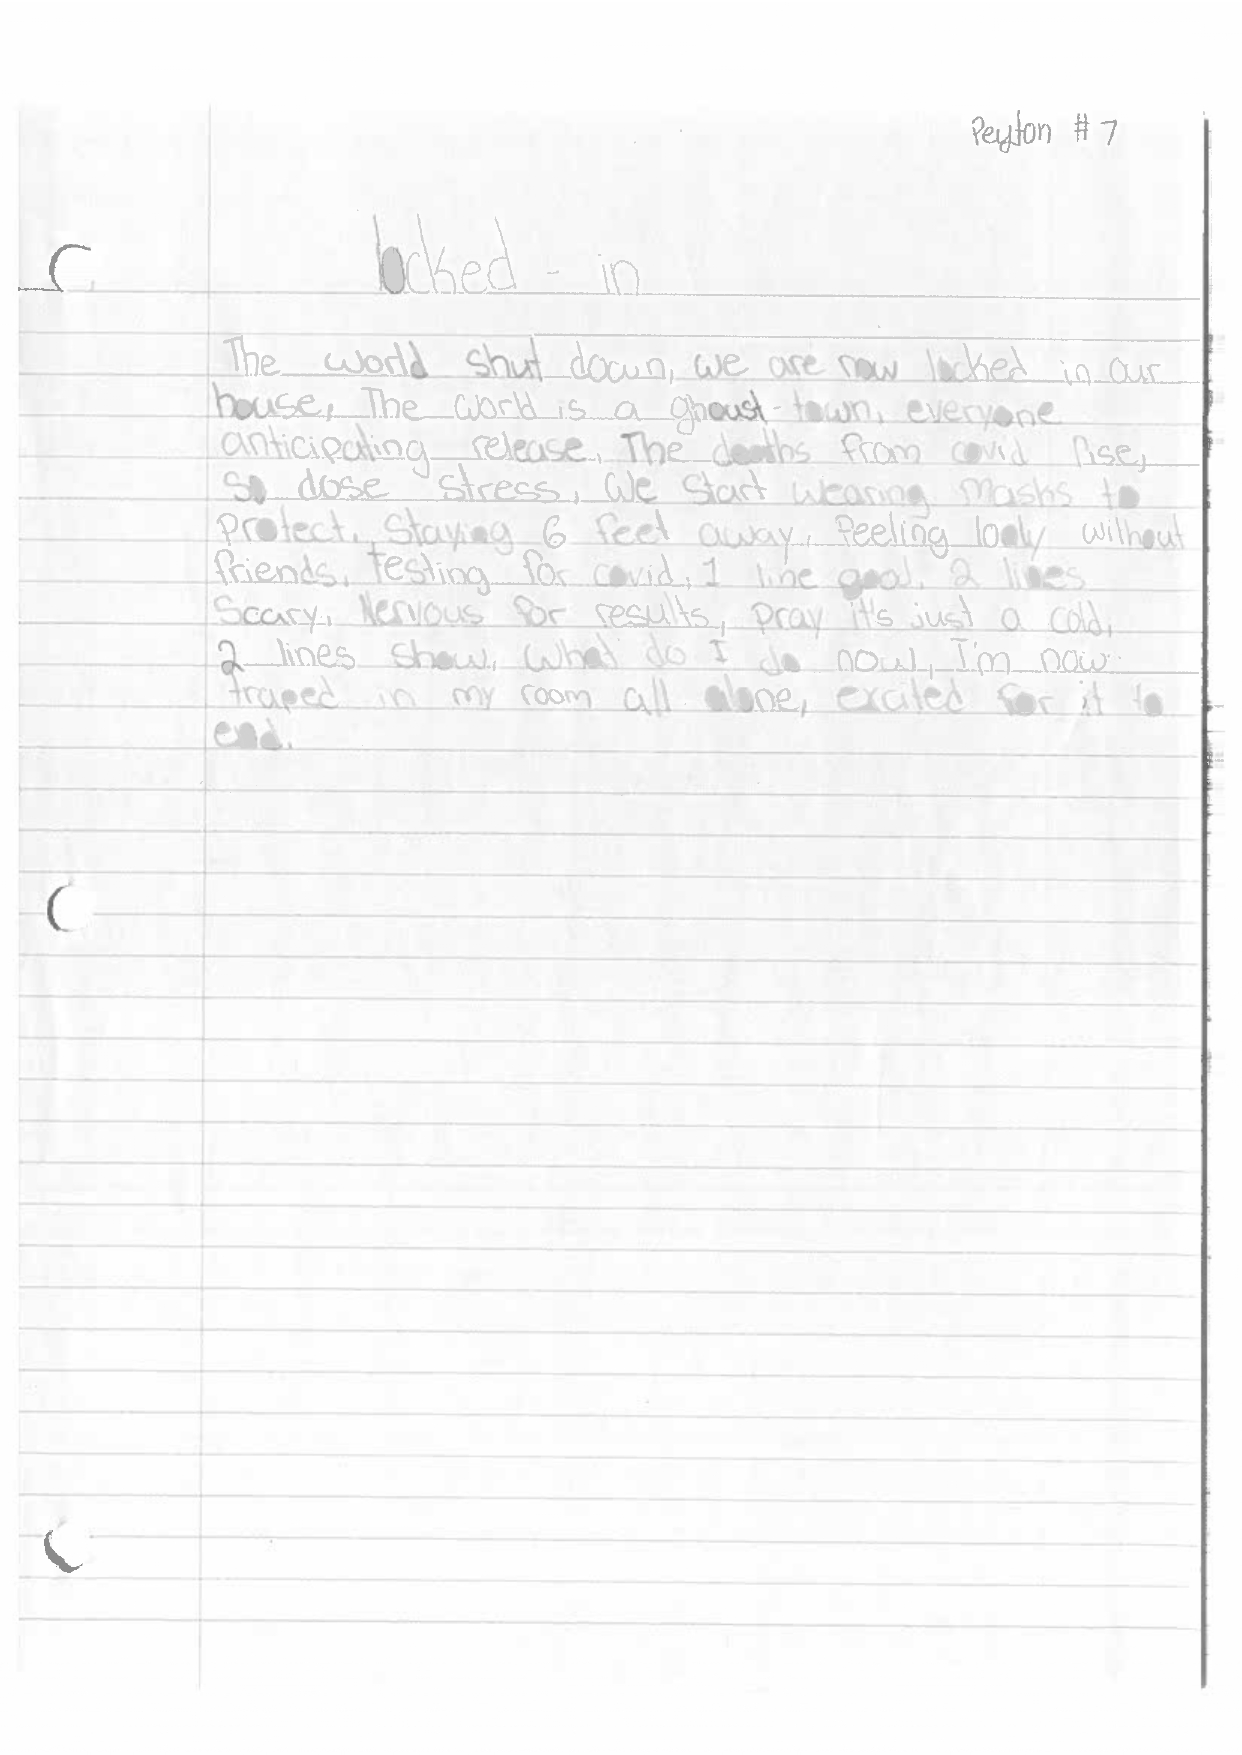 Peyton # 7
locked - in
The world shut down, we are now locked in our
house, The world is a ghoust-town, everyone
anticipating release, The deaths from covid rise,
so dose stress, We start wearing masks to
protect, staying 6 feet away, feeling looly without
friends, testing for covid, 1 line good, 2 lines
scary, Nervous for results, pray it's just a cold,
2 lines show, what do I do now, I'm now
traped in my room all alone, excited for it to
end.